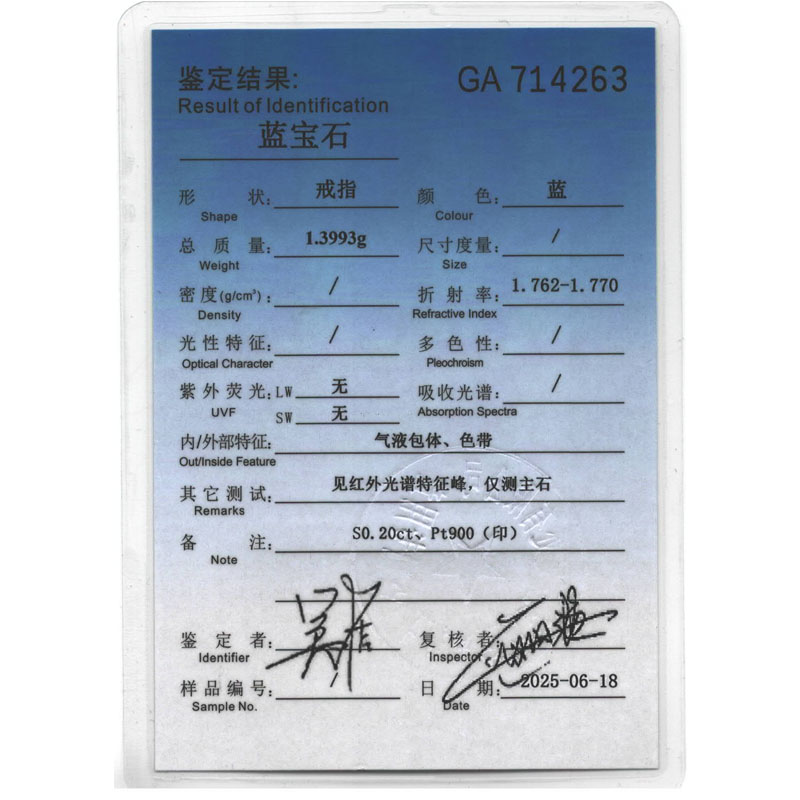 鉴定结果:
GA 714263
Result of Identification
蓝宝石
形状: 戒指
颜色: 蓝
Shape
Colour
总质量: 1.3993g
尺寸度量: /
Weight
Size
密度(g/cm³): /
折射率: 1.762-1.770
Density
Refractive Index
光性特征: /
多色性: /
Optical Character
Pleochroism
紫外荧光: LW 无
吸收光谱: /
UVF
SW 无
Absorption Spectra
内/外部特征: 气液包体、色带
Out/Inside Feature
其它测试: 见红外光谱特征峰, 仅测主石
Remarks
备注: S0.20ct、Pt900（印）
Note
鉴定者:
复核者
Identifier
Inspector
样品编号:
日期: 2025-06-18
Sample No.
Date